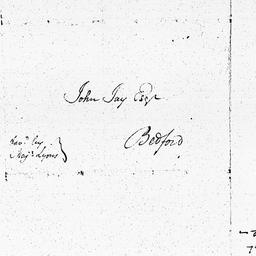 John Jay Esqr
Bedford
favd. by
Majr. Lyons